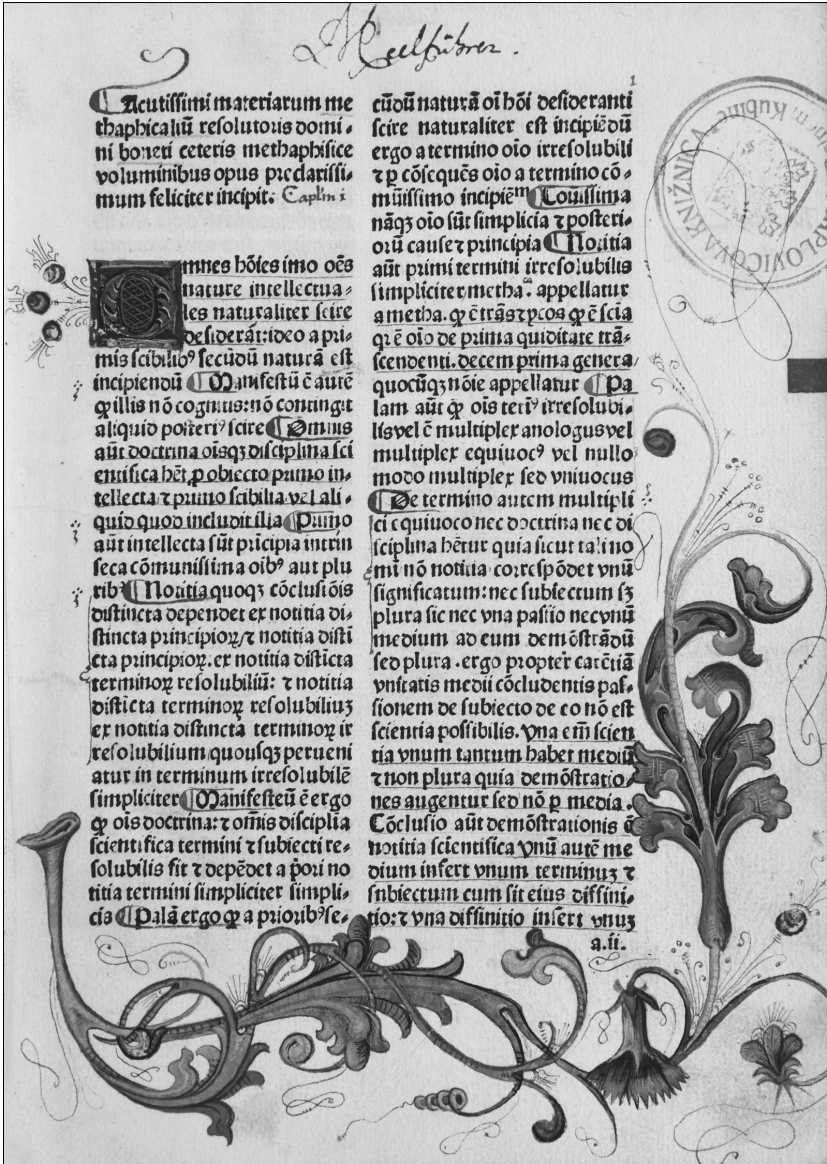 Meelführer.
1
¶Acutissimi materiarum me
thaphicaliũ resolutoris domi-
ni boneti ceteris methaphisice
voluminibus opus preclarissi-
mum feliciter incipit. Caplm i
Omnes hõies imo oẽs
nature intellectua-
les naturaliter scire
desiderãt: ideo a pri-
mis scibilibꝰ secũdũ naturã est
incipiendũ ¶Manifestũ ẽ autẽ
ꝙ illis nõ cognitis: nõ contingit
aliquid posteriꝰ scire ¶Omnis
aũt doctrina oĩsqꝫ disciplina sci
entifica hẽt ꝓ obiecto primo in-
tellecta ⁊ primo scibilia vel ali-
quid quod includit illa ¶Primo
aũt intellecta sũt prĩcipia intrin
seca cõmunissima oibꝰ aut plu
ribꝰ ¶Notitia quoqꝫ cõclusiõis
distincta dependet ex notitia di-
stincta principioꝝ/⁊ notitia distĩ
cta principioꝝ. ex notitia distĩcta
terminoꝝ resolubiliũ: ⁊ notitia
disticta terminoꝝ resolubiliuꝫ
ex notitia distincta terminoꝝ ir
resolubilium quousqꝫ perueni
atur in terminum irresolubilẽ
simpliciter ¶Manifesteũ ẽ ergo
ꝙ oĩs doctrina: ⁊ omĩs disciplia
scientifica termini ⁊ subiecti re-
solubilis fit ⁊ depẽdet a p̃ori no
titia termini simpliciter simpli-
cis ¶Palã ergo ꝙ a prioribꝰ se-
cũdũ naturã oĩ hõi desideranti
scire naturaliter est incipiẽdũ
ergo a termino oĩo irresolubili
⁊ ꝑ cõsequẽs oĩo a termino cõ-
mũissimo incipiẽᵐ ¶Touissima
nãqꝫ oĩo sũt simplicia ⁊ posteri-
orũ cause ⁊ principia ¶Notitia
aũt primi termini irresolubilis
simpliciter metha. appellatur
a metha. ꝙ ẽ trãs ⁊ ꝑcos ꝙ ẽ scĩa
q̃ ẽ oĩo de prima quiditate trã-
scendenti. decem prima genera/
quocũqꝫ nõie appellatur ¶Pa
lam aũt ꝙ oĩs teriꝰ irresolubi-
lis vel ẽ multiplex anologus vel
multiplex equiuocꝰ vel nullo
modo multiplex sed vniuocus
¶De termino autem multipli
ci equiuoco nec doctrina nec di
sciplina hẽtur quia sicut tali no
mĩ nõ notitia correspõdet vnũ
significatum: nec subiectum sꝫ
plura sic nec vna passio nec vnũ
medium ad eum demõstrãdũ
sed plura. ergo propter carẽtiã
vnitatis medii cõcludentis pas-
sionem de subiecto de eo nõ est
scientia possibilis. Vna em̃ scien
tia vnum tantum habet mediũ
⁊ non plura quia demõstratio/
nes augentur sed nõ ꝑ media.
Cõclusio aũt demõstrationis ẽ
notitia scientifica vnũ autẽ me
dium infert vnum terminuꝫ ⁊
snbiectum cum sit eius diffini-
tio: ⁊ vna diffinitio infert vnuꝫ
a.ii.